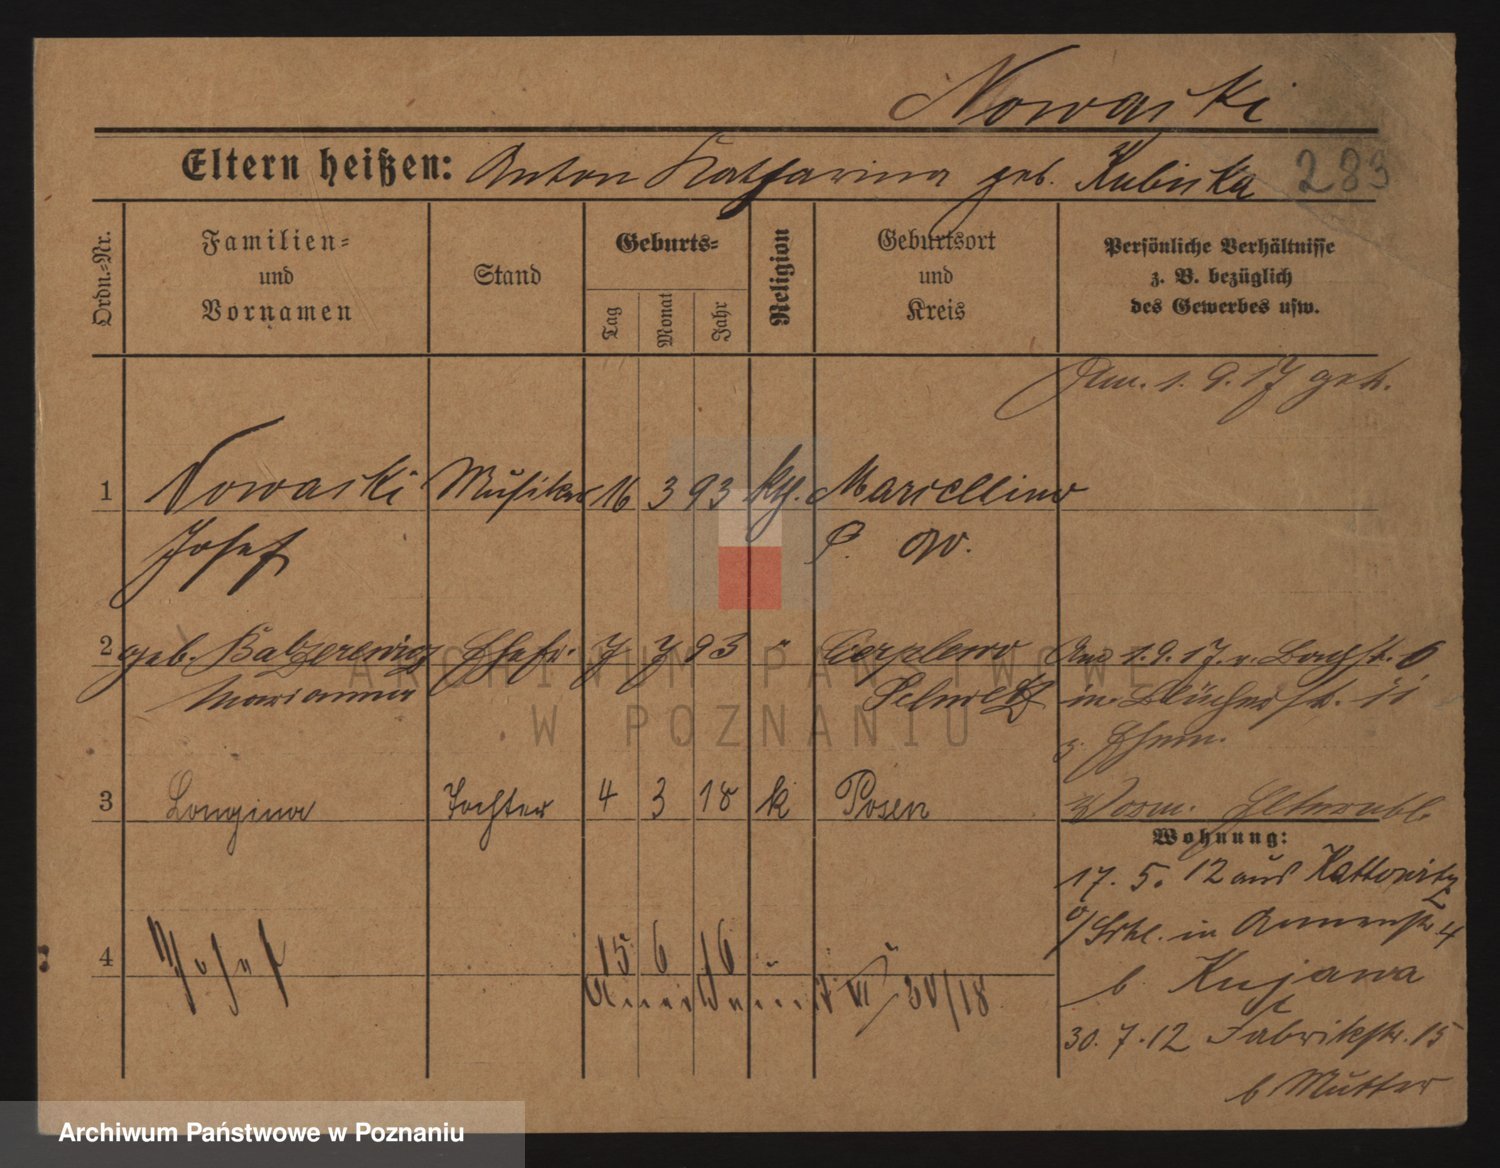 Nowaski
Eltern heißen: Anton Katharina geb. Kubiska 283
Ordn.=Nr. Familien= und Vornamen Stand Geburts= Tag Monat Jahr Religion Geburtsort und Kreis Persönliche Verhältnisse z. B. bezüglich des Gewerbes usw.
Am. 1. 9. 17 geh.
1 Nowaski Musiker 16 3 93 kth. Marcellino
Josef P. W.
2 geb. Balzerewicz Ehefr. 7 7 93 " 1.9.17. v. Bachstr. 6
Marianna in Blücherstr. 11
z. Ehem.
3 Longina Tochter 4 3 18 k Posen
Wohnung:
17. 5. 12 aus Kattowitz
in Annenstr 4
4 Josef 15 6 16
b. Kujawa
30/18
30. 7. 12 Fabrikstr. 15
b Mutter
ARCHIWUM PAŃSTWOWE
W POZNANIU
Archiwum Państwowe w Poznaniu